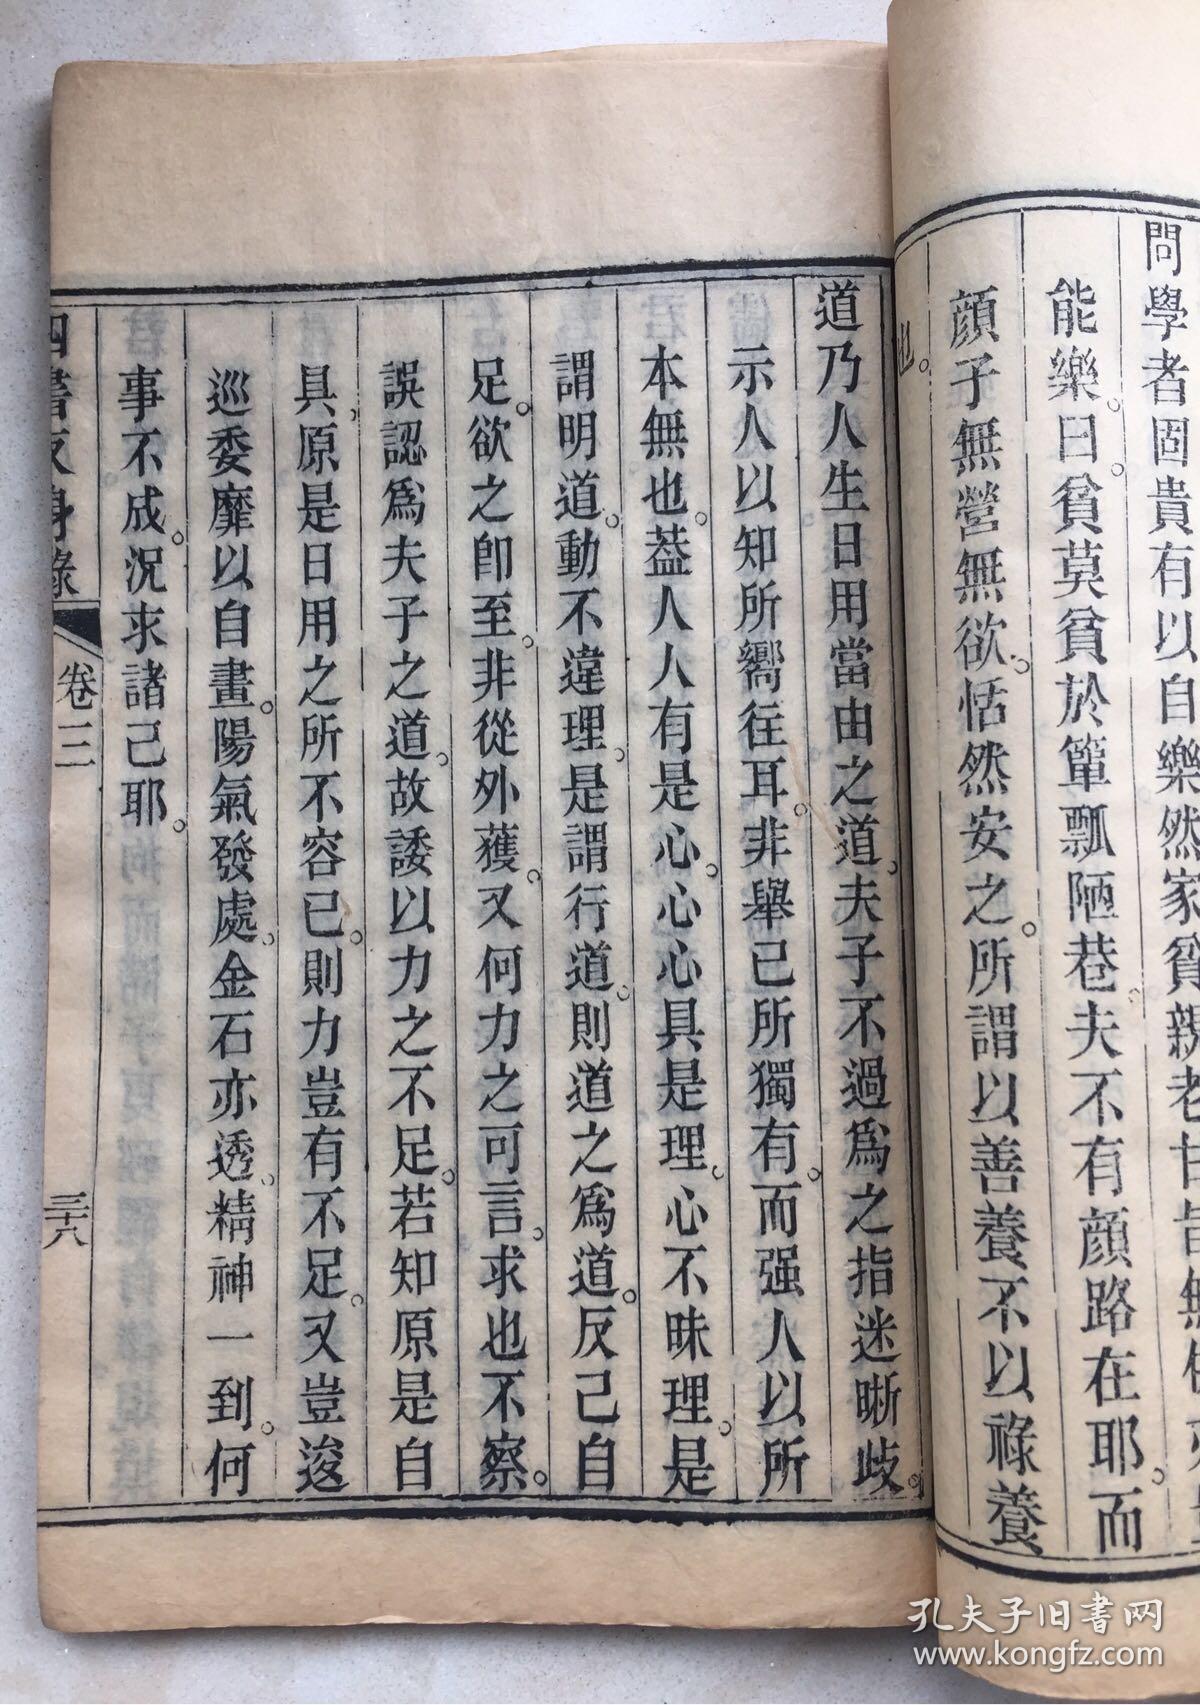 問學者固貴有以自樂然家貧親老甘旨無
能樂。曰貧莫貧於簞瓢陋巷。夫不有顔路在耶。而
顔子無營無欲。恬然安之。所謂以善養不以祿養
也。
道乃人生日用當由之道。夫子不過爲之指迷晰歧。
示人以知所嚮往耳。非舉己所獨有。而强人以所
本無也。葢人人有是心。心心具是理。心不昧理。是
謂明道。動不違理。是謂行道。則道之爲道。反己自
足。欲之卽至。非從外獲。又何力之可言。求也不察。
誤認爲夫子之道。故諉以力之不足。若知原是自
具。原是日用之所不容已。則力豈有不足。又豈逡
巡委靡以自畫。陽氣發處。金石亦透。精神一到。何
事不成。況求諸己耶。
四書反身錄
卷三
三十八
孔夫子旧书网
www.kongfz.com